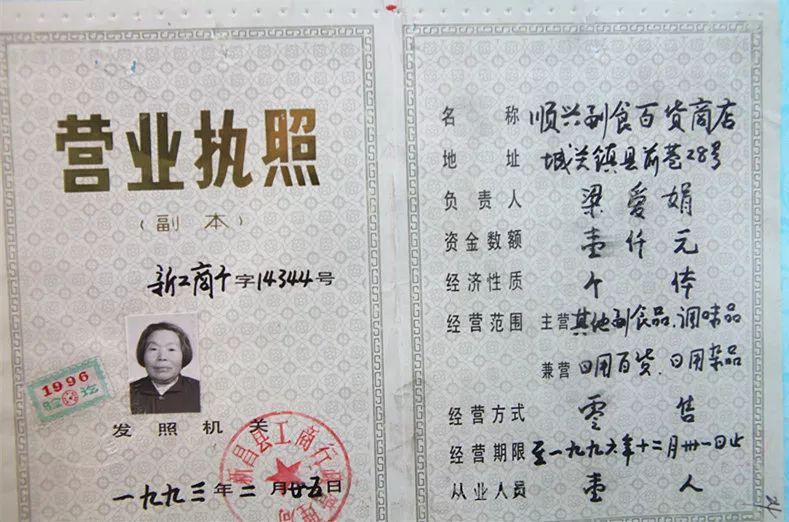 营业执照
（副本）
新工商个字14344号
1996
验讫
发照机关
新昌县工商行政管理局
一九九三年二月廿五日
名称 顺兴副食百货商店
地址 城关镇县前巷28号
负责人 梁爱娟
资金数额 壹仟元
经济性质 个体
经营范围 主营 其他副食品、调味品
兼营 日用百货、日用杂品
经营方式 零售
经营期限 至一九九六年十二月卅一日止
从业人员 壹人